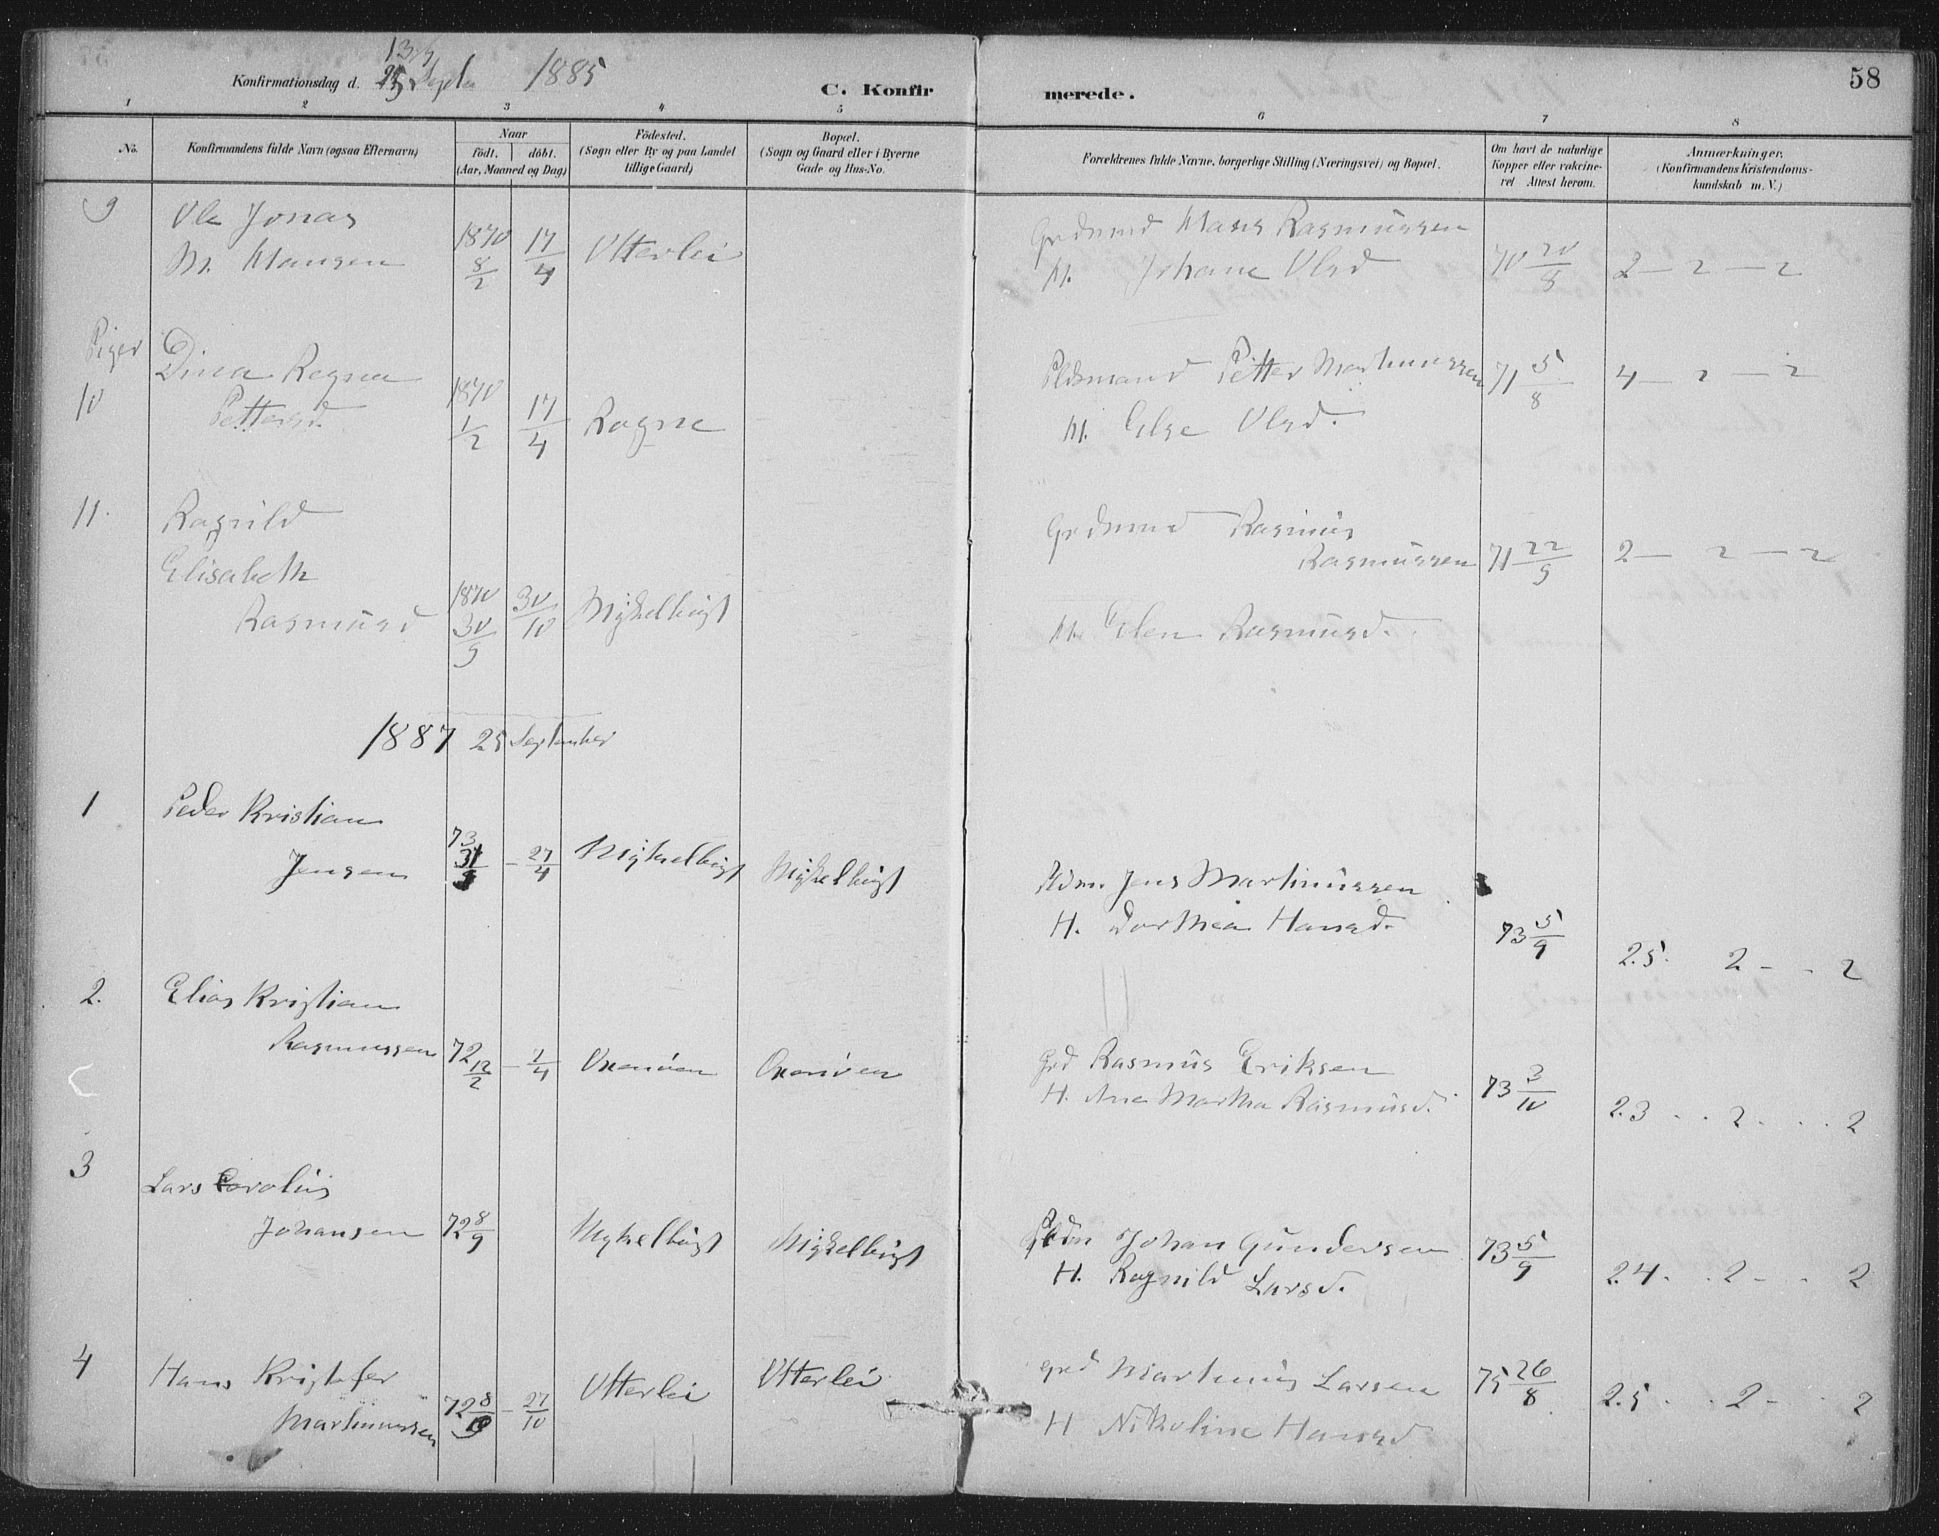 58
13/9
Konfirmationsdag d. Septr 1885
C. Konfirmerede.
1 2 3 4 5 6 7 8
No. Konfirmandens fulde Navn (ogsaa Efternavn)
Naar
födt. döbt.
(Aar, Maaned og Dag)
Födested.
(Sogn eller By og paa Landet
tillige Gaard)
Bopæl.
(Sogn og Gaard eller i Byerne
Gade og Hus-No.
Forældrenes fulde Navne, borgerlige Stilling (Næringsvei) og Bopæl.
Om havt de naturlige
Kopper eller vakcine-
ret Attest herom.
Anmærkninger.
(Konfirmandens Kristendoms-
kundskab m. V.)
9 Ole Jonas
M. Hansen 1870 8/2 17/4 Utterlei
Grdmnd Hans Rasmussen
H. Johane Olsd 70 20/8 2 — 2 — 2
Piger
10 Dina Regna
Pettersd. 1870 1/2 17/4 Rogne
Pldsmand Petter Martinussen 71 5/8 4 — 2 — 2
H. Else Olsd.
11. Ragnild
Elisabeth
Rasmusd 1870 30/9 30/10 Mykelbugt
Grdmnd Rasmus
Rasmussen 71 22/9 2 — 2 — 2
H. Elen Rasmusd.
1887 25 September
1 Peder Kristian
Jensen 73 31/3 — 27/4 Mykelbugt Mykelbugt
Pldm. Jens Martinussen
H. Dorthea Hansd. 73 5/9 2.5. 2 - - 2
2. Elias Kristian
Rasmussen 72 12/2 — 7/4 Oxenöen Oxenöen
Grd Rasmus Eriksen
H. Ane Martha Rasmusd. 73 3/10 2.3 . . 2 . . . 2
3 Lars Carolius
Johansen 72 8/9 Mykelbugt Mykelbugt
Pldm Johan Gundersen 73 5/9
H. Ragnild Larsd. 2.4. . 2 - . 2
4 Hans Kristofer
Martinussen 72 8/9 — 27/10 Utterlei Utterlei
Grd Martinus Larsen 75 26/8 2.5 . . 2 - . 2
H Nikoline Hansd